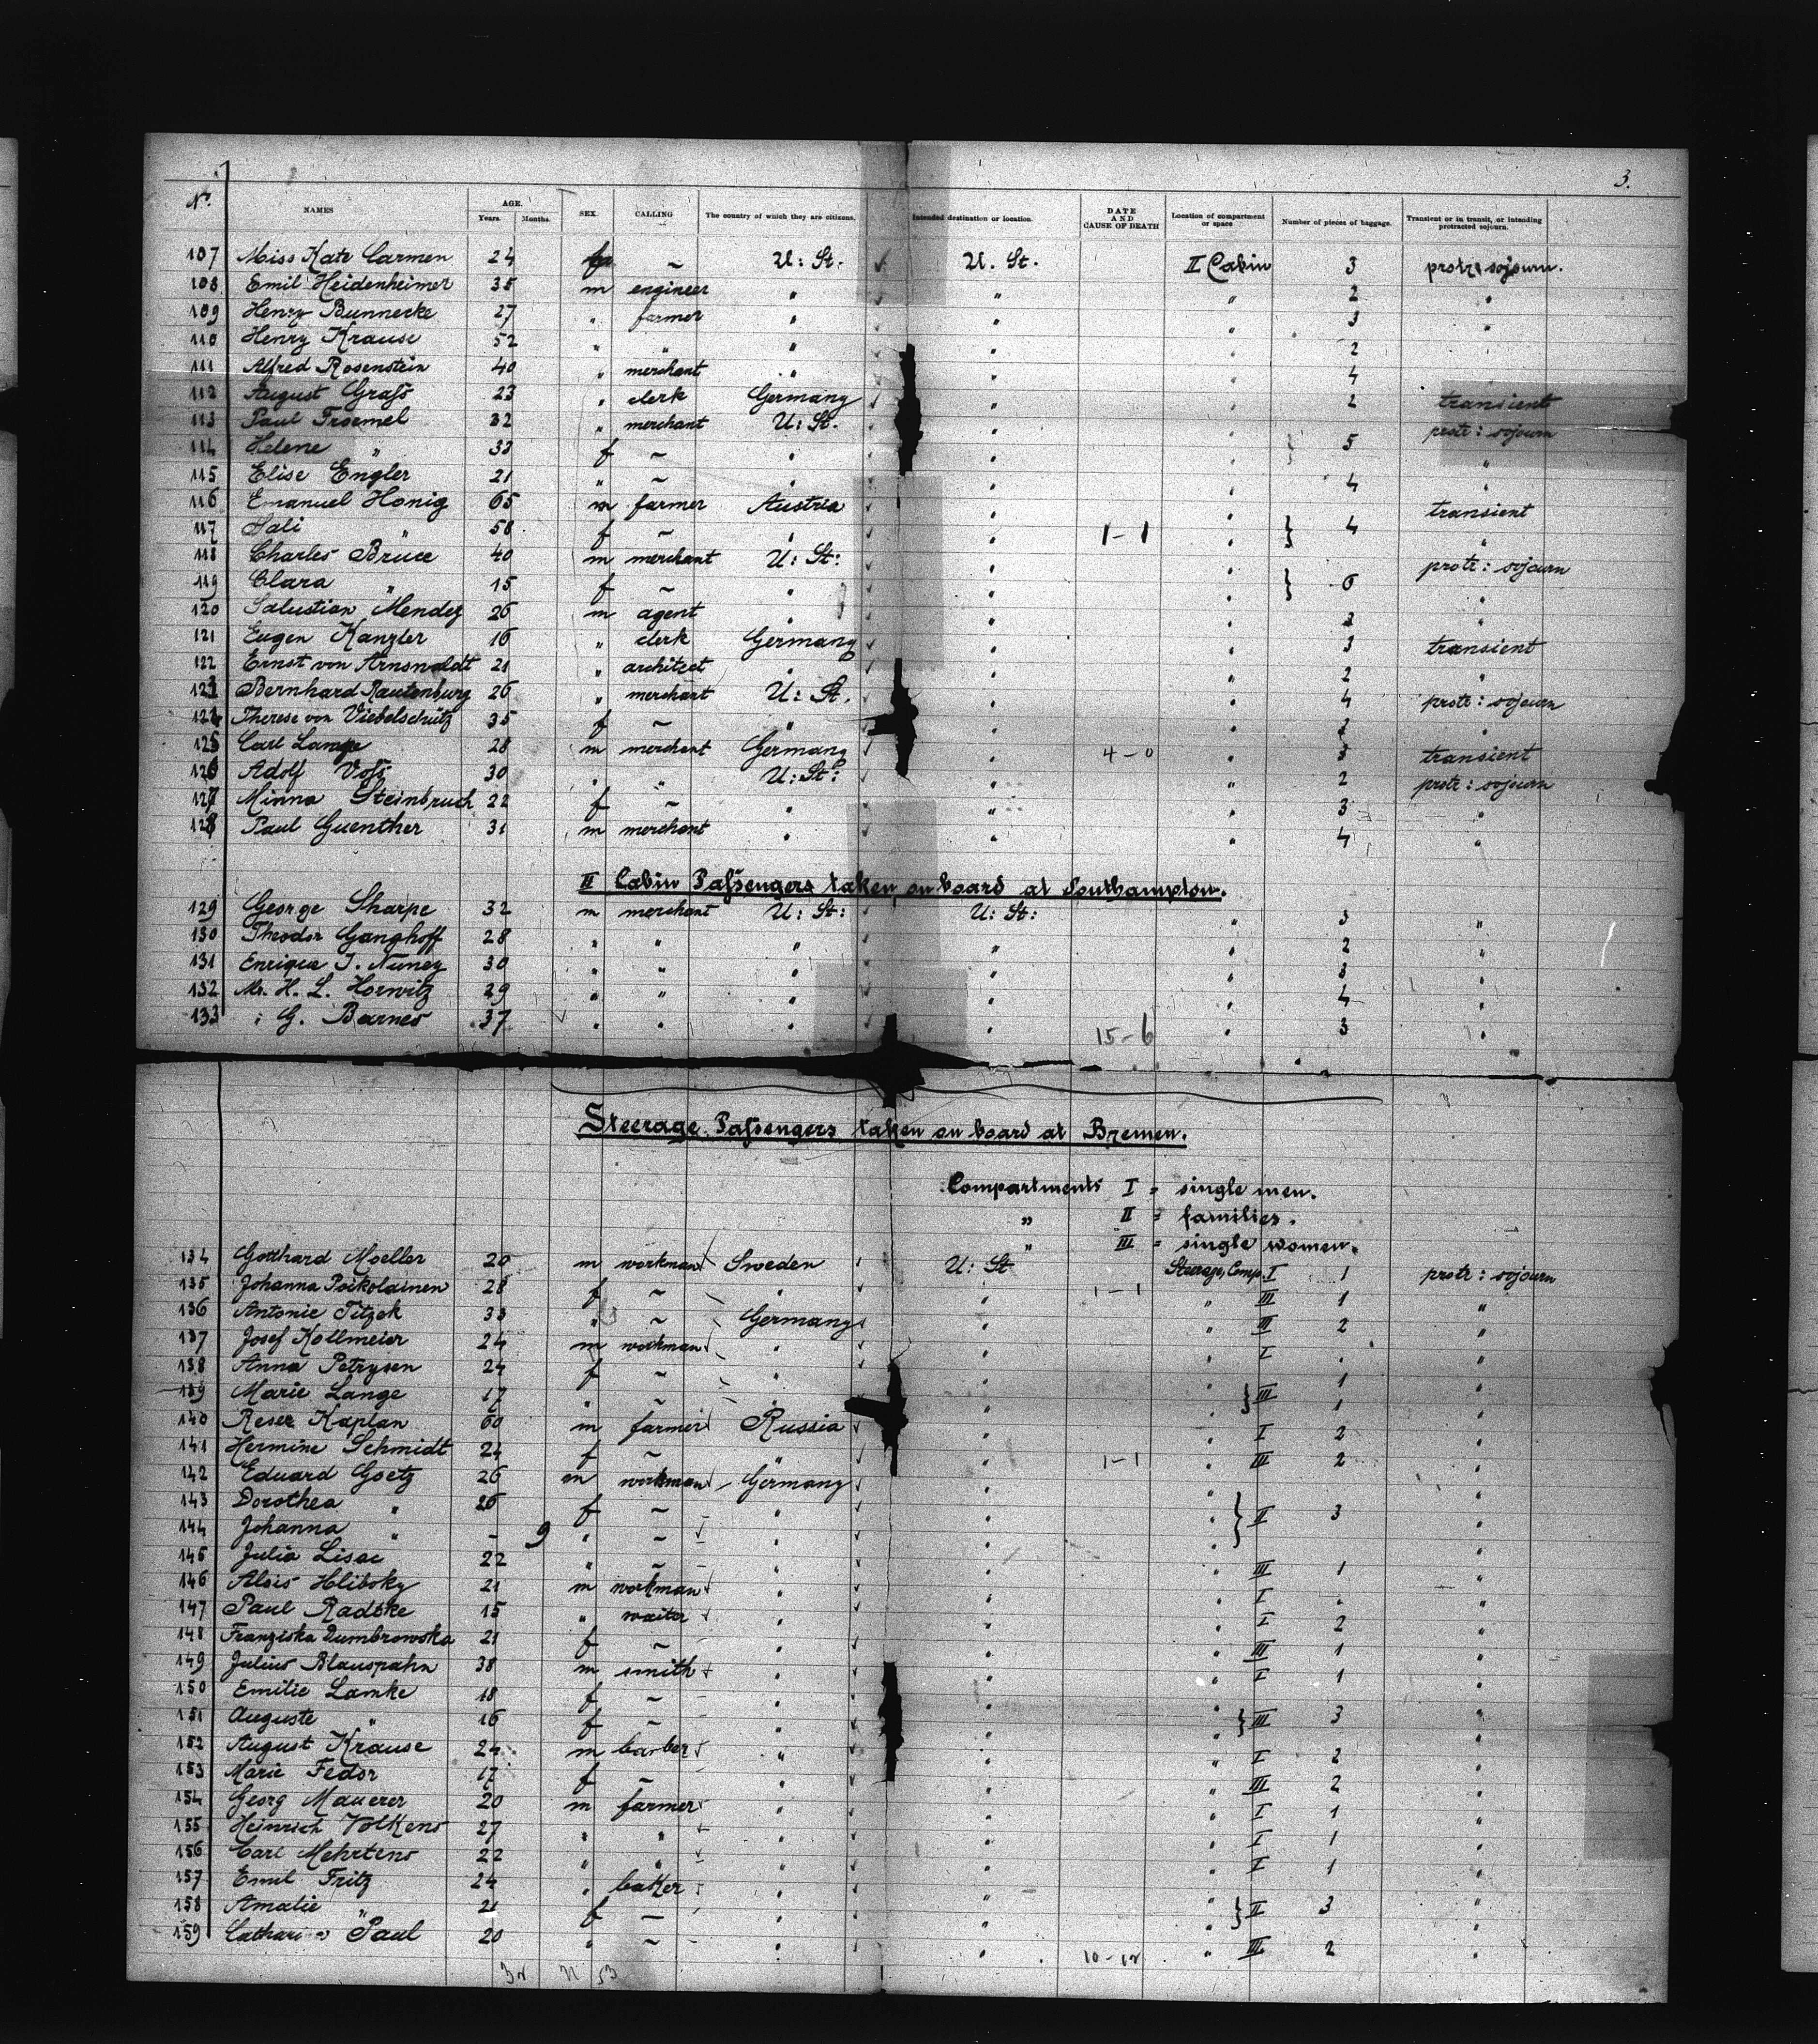 3.
No. NAMES AGE. Years. Months. SEX. CALLING The country of which they are citizens. Intended destination or location. DATE AND CAUSE OF DEATH Location of compartment or space Number of pieces of baggage. Transient or in transit, or intending protracted sojourn.
107 Miss Kate Carmen 24 f ~ U: St. U. St. II Cabin 3 protr: sojourn.
108 Emil Heidenheimer 35 m engineer " " " 2 "
109 Henry Bunnecke 27 " farmer " " " 3 "
110 Henry Krause 52 " " " " " 2
111 Alfred Rosenstein 40 " merchant " " " 4
112 August Grafs 23 " clerk Germany " " 2 transient
113 Paul Froemel 32 " merchant U: St. " " protr: sojourn
114 Helene " 33 f ~ " " " } 5 "
115 Elise Engler 21 " ~ " " " 4 "
116 Emanuel Honig 65 m farmer Austria " " transient
117 Sali " 58 f ~ " " 1-1 " } 4 "
118 Charles Bruce 40 m merchant U: St: " " protr: sojourn
119 Clara " 15 f ~ " " " } 6 "
120 Salustian Mendez 26 m agent " " " "
121 Eugen Kanzler 16 " clerk Germany " " 3 transient
122 Ernst von Arnswaldt 21 " architect " " " 2 "
123 Bernhard Rautenburg 26 " merchant U: St. " " 4 protr: sojourn
124 Therese von Viebelschütz 35 f ~ " " " "
125 Carl Lampe 28 m merchant Germany " 4-0 " 3 transient
126 Adolf Vofs 30 " " U: St: " " 2 protr: sojourn
127 Minna Steinbruch 22 f ~ " " " 3 "
128 Paul Guenther 31 m merchant " " " 4 "
II Cabin Pafsengers taken on board at Southampton.
129 George Sharpe 32 m merchant U: St: U: St: " 3 "
130 Theodor Ganghoff 28 " " " " " 2 "
131 Enrique J. Nunez 30 " " " " " 3 "
132 Mr. H. L. Horwitz 29 " " " " " 4 "
133 " G. Barnes 37 " " " " 15-6 " 3 "
Steerage Pafsengers taken on board at Bremen.
Compartments I = single men.
" II = families.
" III = single women.
134 Gotthard Moeller 20 m workman Sweden U: St Steerage, Comp. I 1 protr: sojourn
135 Johanna Poikolainen 28 f ~ " " 1-1 " III 1 "
136 Antonie Titzek 33 " ~ Germany " " III 2 "
137 Josef Kollmeier 24 m workman " " " I . "
138 Anna Petrysen 24 f ~ " " " 1 "
139 Marie Lange 17 " ~ " " " } III 1 "
140 Reser Kaplan 60 m farmer Russia " " I 2 "
141 Hermine Schmidt 24 f ~ " " 1-1 " III 2 "
142 Eduard Goetz 26 m workman Germany " " "
143 Dorothea " 26 f ~ " " " } II 3 "
144 Johanna " - 9 " ~ " " " "
145 Julia Lisac 22 " ~ " " " III 1 "
146 Alois Hliboky 21 m workman " " " I . "
147 Paul Radtke 15 " waiter " " " I 2 "
148 Franziska Dumbrowska 21 f ~ " " " III 1 "
149 Julius Blauspahn 38 m smith " " " I 1 "
150 Emilie Lamke 18 f ~ " " " "
151 Auguste " 16 f ~ " " " } III 3 "
152 August Krause 24 m barber " " " I 2 "
153 Marie Fedor 17 f ~ " " " III 2 "
154 Georg Mauerer 20 m farmer " " " I 1 "
155 Heinrich Volkens 27 " " " " " I 1 "
156 Carl Mehrtens 22 " " " " " I 1 "
157 Emil Fritz 24 " baker " " " "
158 Amalie " 21 f ~ " " " } II 3 "
159 Paul 20 " ~ " " " III 2 "